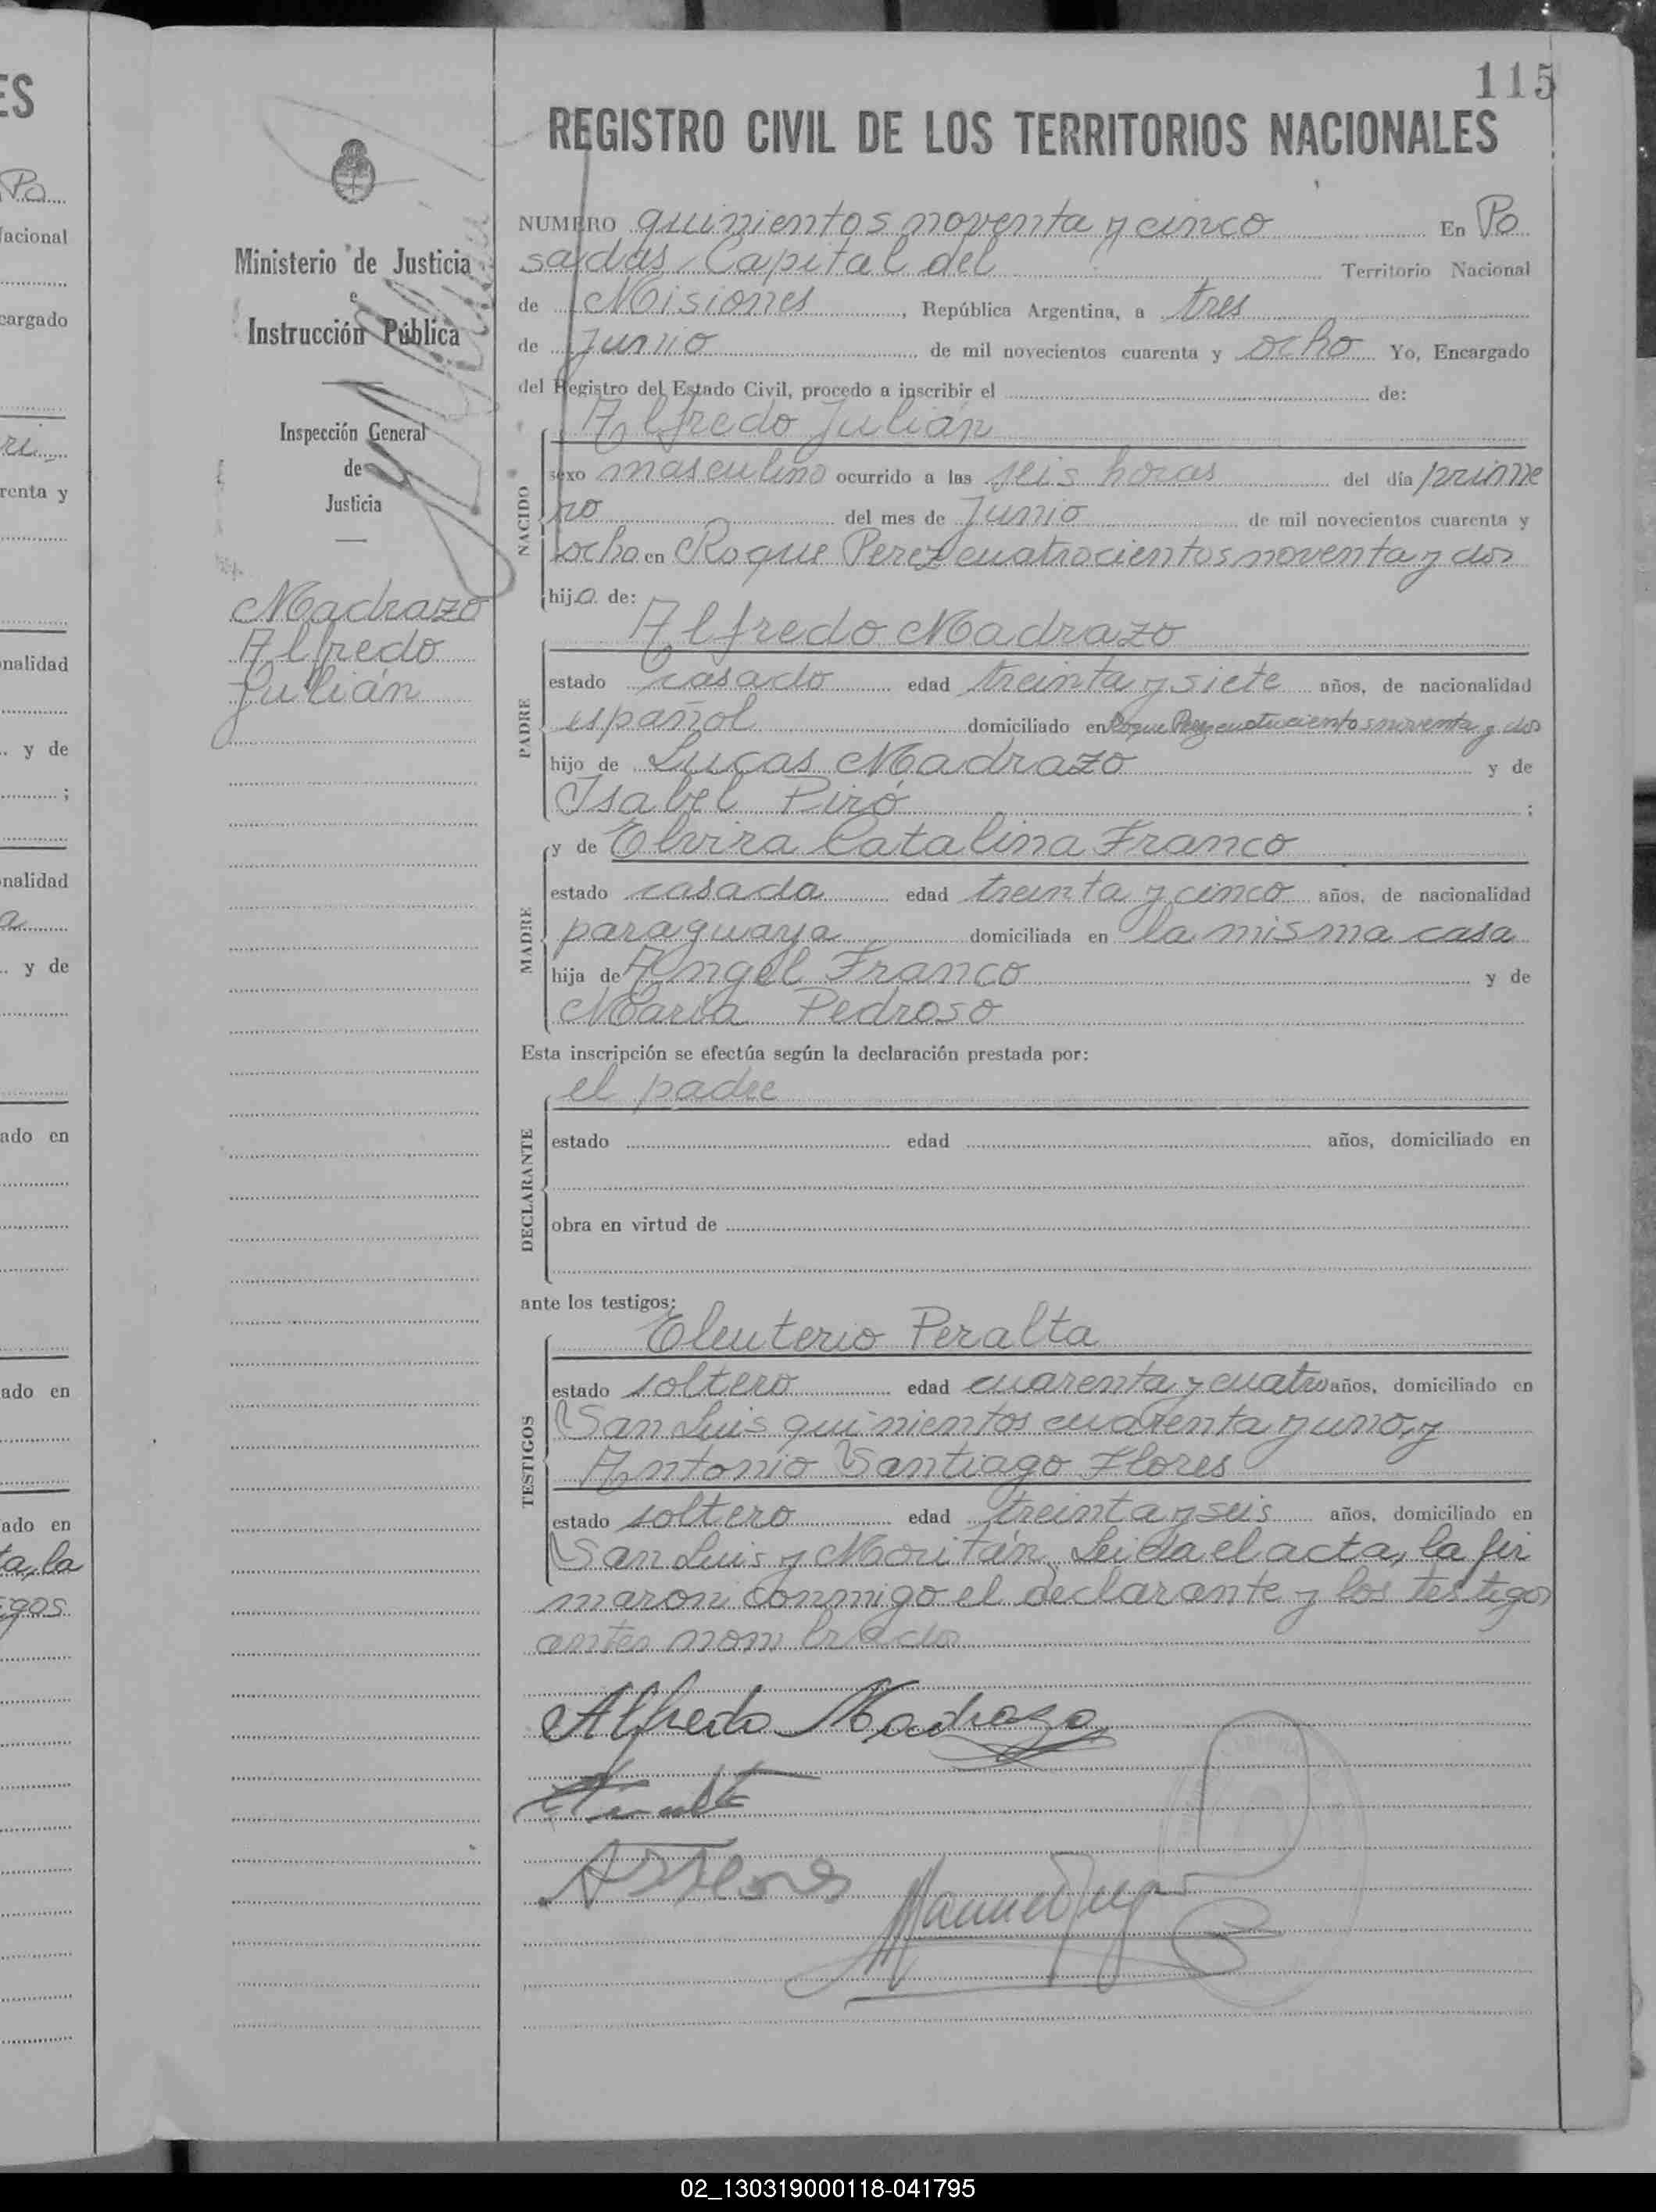 ES
Po
Nacional
cargado
ri
renta y
nalidad
y de
;
nalidad
a
y de
ado en
ado en
ado en
ta, la
gos
Ministerio de Justicia
e
Instrucción Pública
Inspección General
de
Justicia
Madrazo
Alfredo
Julián
115
REGISTRO CIVIL DE LOS TERRITORIOS NACIONALES
NUMERO quinientos noventa y cinco En Po
sadas, Capital del Territorio Nacional
de Misiones, República Argentina, a tres
de Junio de mil novecientos cuarenta y ocho Yo, Encargado
del Registro del Estado Civil, procedo a inscribir el de:
Alfredo Julián
NACIDO
sexo masculino ocurrido a las seis horas del día prime
ro del mes de Junio de mil novecientos cuarenta y
ocho en Roque Perez cuatrocientos noventa y dos
hijo de:
Alfredo Madrazo
PADRE
estado casado edad treinta y siete años, de nacionalidad
español domiciliado en Roque Perez cuatrocientos noventa y dos
hijo de Lucas Madrazo y de
Isabel Piró ;
y de Elvira Catalina Franco
MADRE
estado casada edad treinta y cinco años, de nacionalidad
paraguaya domiciliada en la misma casa
hija de Angel Franco y de
María Pedroso
Esta inscripción se efectúa según la declaración prestada por:
el padre
DECLARANTE
estado edad años, domiciliado en
obra en virtud de
ante los testigos:
Eleuterio Peralta
TESTIGOS
estado soltero edad cuarenta y cuatro años, domiciliado en
San Luis quinientos cuarenta y uno, y
Antonio Santiago Flores
estado soltero edad treinta y seis años, domiciliado en
San Luis y Moritán. Leida el acta, la fir
maron conmigo el declarante y los testigos
antes nombrados
Alfredo Madrazo
02_130319000118-041795